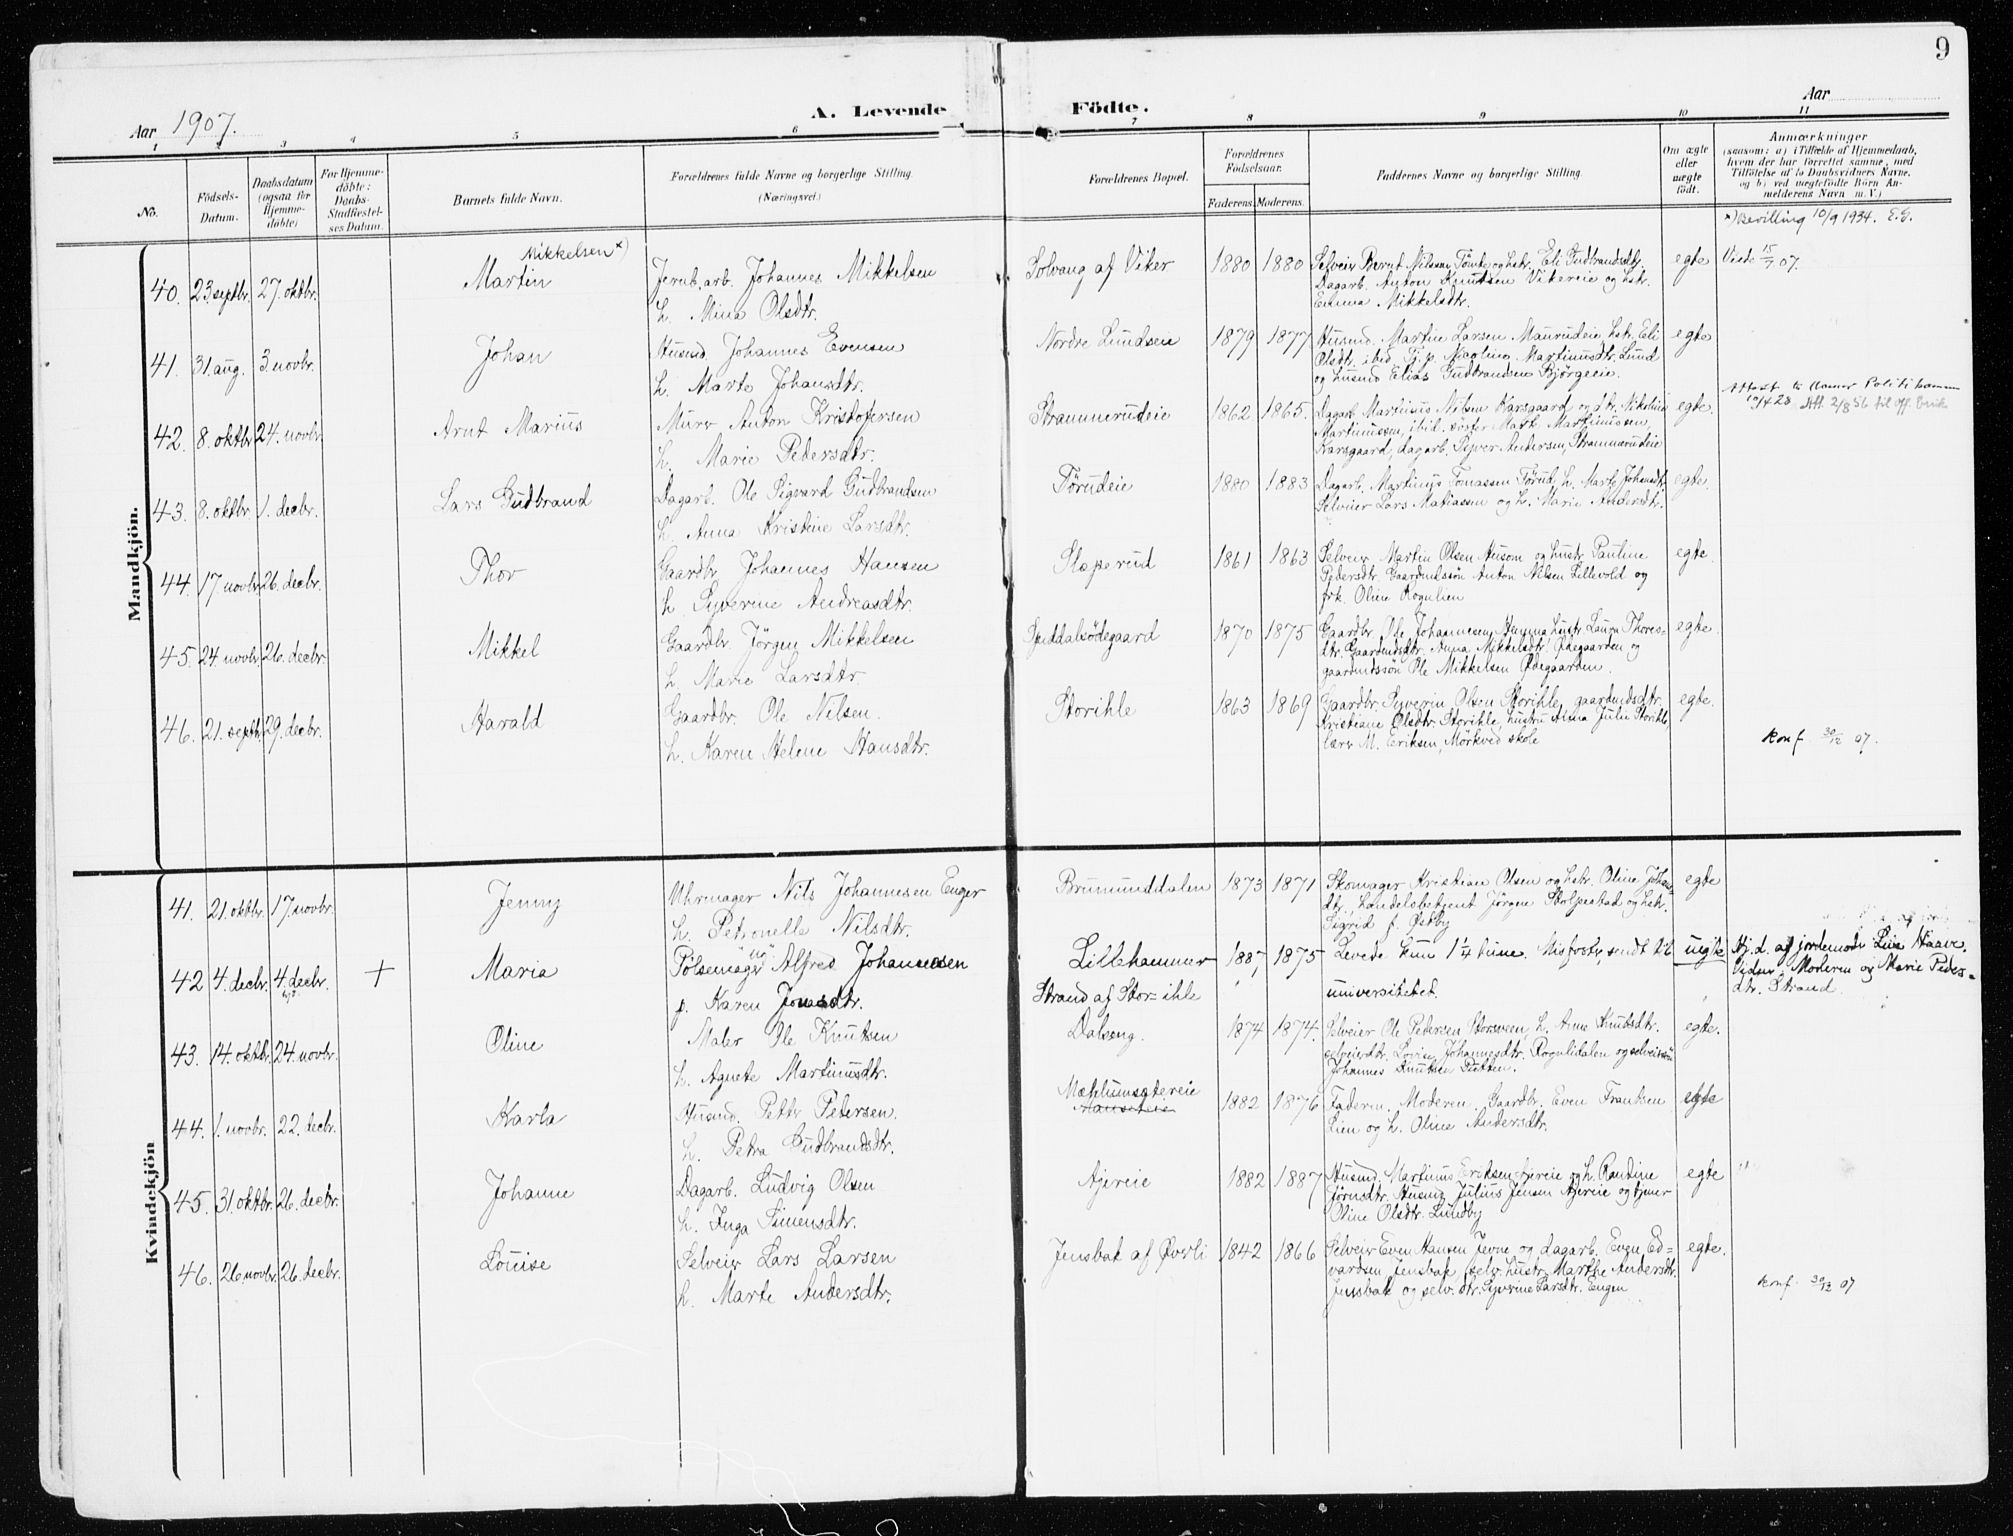 9
Aar 1907.
A. Levende Födte.
Aar
1 2 3 4 5 6 7 8 9 10 11
No.
Födsels-Datum.
Daabsdatum (ogsaa for Hjemme-döbte)
For Hjemme-döbte: Daabs-Stadfæstel-ses Datum.
Barnets fulde Navn.
Forældrenes fulde Navne og borgerlige Stilling. (Næringsvei.)
Forældrenes Bopæl.
Forældrenes Fødselsaar.
Faderens. Moderens.
Faddernes Navne og borgerlige Stilling.
Om ægte eller uægte født.
Anmærkninger
(saasom: a) i Tilfælde af Hjemmedaab,
hvem der har forrettet samme, med
Tilföielse af to Daabsvidners Navne,
og b) ved uegtefödte Börn An-
melderens Navn m. V.)
x) Bevilling 10/9 1934. E.G.
Mandkjön.
40. 23. septbr. 27. oktbr. Martin Mikkelsen x)
Jernb.arb. Johannes Mikkelsen
h. Mina Olsdtr.
Solvang af Viker 1880 1880
Selveier Bernt Nilssen Tömte og hstr. Eli Gudbrandsdtr,
Dagarb. Anton Knutsen Vikereie og hstr.
Emma Mikkelsdtr.
egte Vide 15/7 07.
41. 31. aug. 3. novbr. Johan
Husmd. Johannes Evensen
h. Marte Johansdtr.
Nordre Lundseie 1879 1877
Husmd. Martin Larsen Maurudeie, hstr. Eli
Olsdtr. ibid. Tj.p. Nicoline Martinusdtr. Lund
og husmd Elias Gudbrandsen Bjørgeeie.
egte
42. 8. oktbr. 24. novbr. Arnt Marius
Murer Anton Kristofersen
h. Marie Pedersdtr.
Strammerudeie 1862 1865.
Dagarb. Martinius Nilsen Karsgaard og dtr. Nikoline
Martinussen, ibid. søster Mart. Martinussen,
Karsgaard, dagarb. Syver Andersen, Strammerudeie
egte.
Attest til Hamar Politikammer
10/4 28 Att. 2/8 56 til off. bruk
43. 8. oktbr. 1. decbr. Lars Gudbrand
Dagarb. Ole Sigvard Gudbrandsen
h. Anna Kristine Larsdtr.
Førudeie 1880 1883
Dagarb. Martinus Tomassen Förud, h. Marte Johansdtr.
Selveier Lars Matiassen og h. Marie Andersdtr.
egte.
44. 17. novbr. 26. decbr. Thor
Gaardbr Johannes Hansen
h. Syverine Andreasdtr.
Slaperud 1861 1863
Selveier Martin Olsen Husom og hustr. Pauline
Pedersdtr. Gaardmdssön Anton Nilsen Lillevold og
frk. Oline Rognlien
egte.
45. 24. novbr. 26. decbr. Mikkel
Gaardbr. Jörgen Mikkelsen
h. Marie Larsdtr.
1870 1875
Gaardbr. Ole Johannesen hustr Laura Thores-
dtr. Gaardmdsdtr. Anna Mikkelsdtr. Ødegaarden og
gaardmdssön Ole Mikkelsen Ødegaarden.
egte.
46. 21. septbr. 29. decbr. Harald
Gaardbr. Ole Nilsen.
h. Karen Helene Hansdtr.
Storihle 1863 1869
Gaardbr. Syverin Olsen Storihle, gaardmdsdtr.
Kristiane Olsdtr. Storihle, hustru Anna Julie Storihle,
lærer M. Eriksen, Mörkved skole
egte.
konf. 30/12 07.
Kvindekjön
41. 21. oktbr. 17. novbr. Jenny
Uhrmager Nils Johannesen Enger
h. Petronelle Nilsdtr.
Brumunddalen 1873 1871
Skomager Kristian Olsen og hstr. Oline Johans-
dtr., handelsbetjent Jörgen Stolpestad og hstr.
Sigrid f. Østby
egte
42 4. decbr. 4. decbr. + Maria
Pölsemager Alfred Johannesen
p. Karen Jonsdtr.
Lillehammer
Strand af Stor-ihle
1887, 1875
Levede kun 1 1/4 time. Misfoster, sendt til
universitetet.
uegte
Hj.d. af jordemoder Lina Haave.
Vidner: Moderen og Marie Peders-
dtr. Strand.
43. 14. oktbr. 24. novbr. Oline
Maler Ole Knutsen
h. Agnete Martinusdtr.
Dalseng. 1874 1874.
Selveier Ole Pedersen Storsveen, h. Anne Knutsdtr.
selveierdtr. Lovise Johannesdtr. Rognlidalen og selveiersön
Johannes Knutsen Putten.
egte.
44. 1. novbr. 22. decbr. Karla
Husmd. Petter Petersen.
h. Petra Gudbrandsdtr.
Mæhlumsætereie 1882 1876
Faderen. Moderen. Gaardbr. Even Frantsen
Lien og h. Oline Andersdtr.
egte
45. 31. oktbr. 26. decbr. Johanne
Dagarb. Ludvig Olsen
h. Inga Simensdtr.
Ajereie 1882 1887
Husmd. Martinus Eriksen Ajereie og h. Randine
Jörnsdtr. Husmd. Julius Jensen Ajereie og tjener
Oline Olsdtr. Lundby
egte
46. 26. novbr. 26. decbr. Louise
Selveier Lars Larsen
h. Marte Andersdtr.
Jensbak af Øverli 1842 1866
Selveier Even Hansen Jevne og dagarb. Even Ed-
vardsen Jensbak, selv. hustr. Marthe Andersdtr.
Jensbak og selv. dtr. Syverine Larsdtr. Engen
egte.
konf. 30/12 07